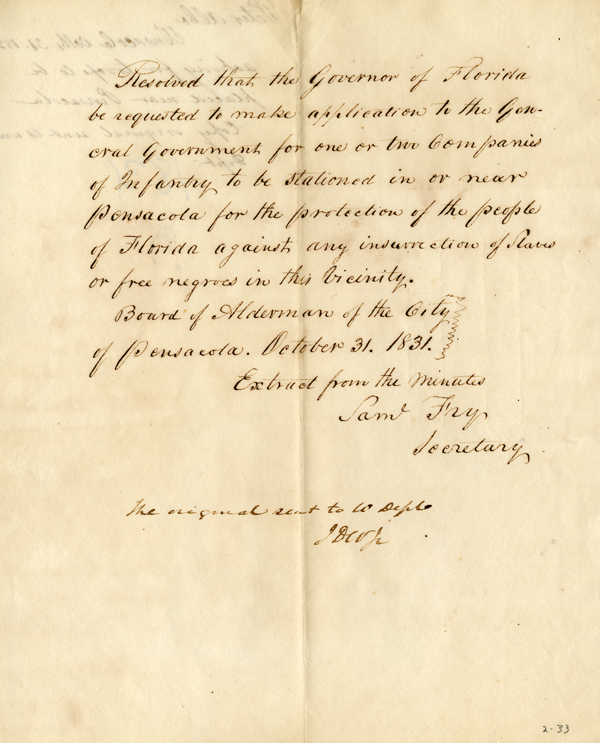 Resolved that the Governor of Florida
be requested to make application to the Gen-
eral Government for one or two Companies
of Infantry to be stationed in or near
Pensacola for the protection of the people
of Florida against any insurrection of Slaves
or free negroes in this Vicinity.
Board of Alderman of the City
of Pensacola. October 31. 1831.
Extract from the Minutes
Saml Fry
Secretary
The original sent to W Dept
2-33